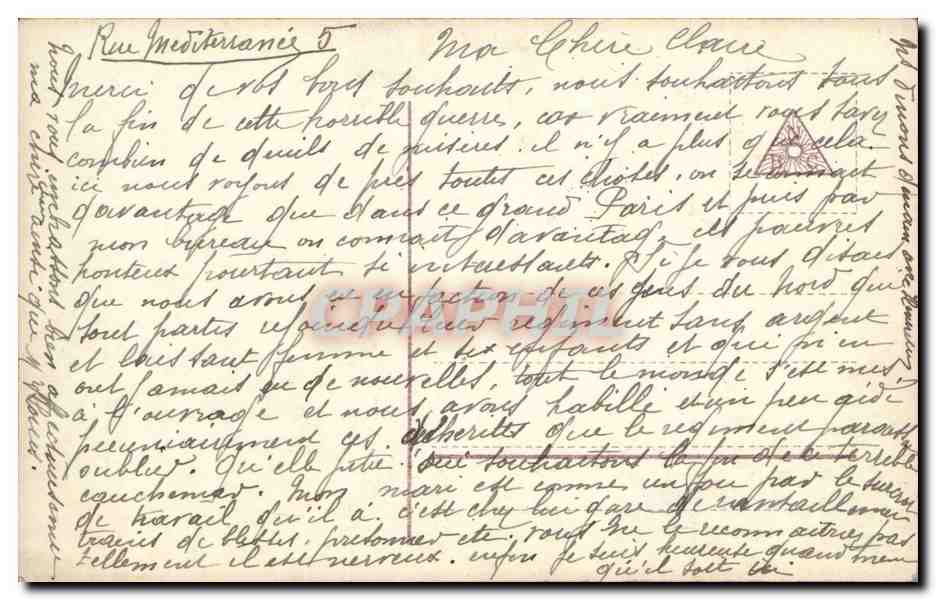 Rue Mediterranée 5
Ma Chère Claire
Merci de vos bons souhaits, nous souhaitons tous
la fin de cette horrible guerre, car vraiement vous savez
combien de deuils de misères. il n'y a plus que cela.
ici nous voyons de près toutes ces choses. on se connait
davantage que dans ce grand Paris et puis par
mon bureau on connait d'avantage les pauvres
honteux pourtant si interessants. Si je vous disais
que nous avons eu en action de ces gens du Nord qui
sont partis rejoindre leur regiment sans argent
et laissant femme et six enfants et qui n'en
ont jamais eu de nouvelles, tout le monde s'est mis
à l'ouvrage et nous avons habillé et un peu aidé
pecuniairement ces desherites que le regiment paroissait
oublier. Qu'elle pitié souhaitons la fin de ce terrible
cauchemar. Mon mari est comme un fou par le surcroit
de travail qu'il à. c'est chez lui gare de
trains de blessés, prisonnier etc. vous ne le reconnaitrez pas
tellement il est nerveux. enfin je suis heureuse quand meme
qu'il soit ici
Nous vous embrassons bien affectueusement
ma chère amie ainsi que
CPAPHIL